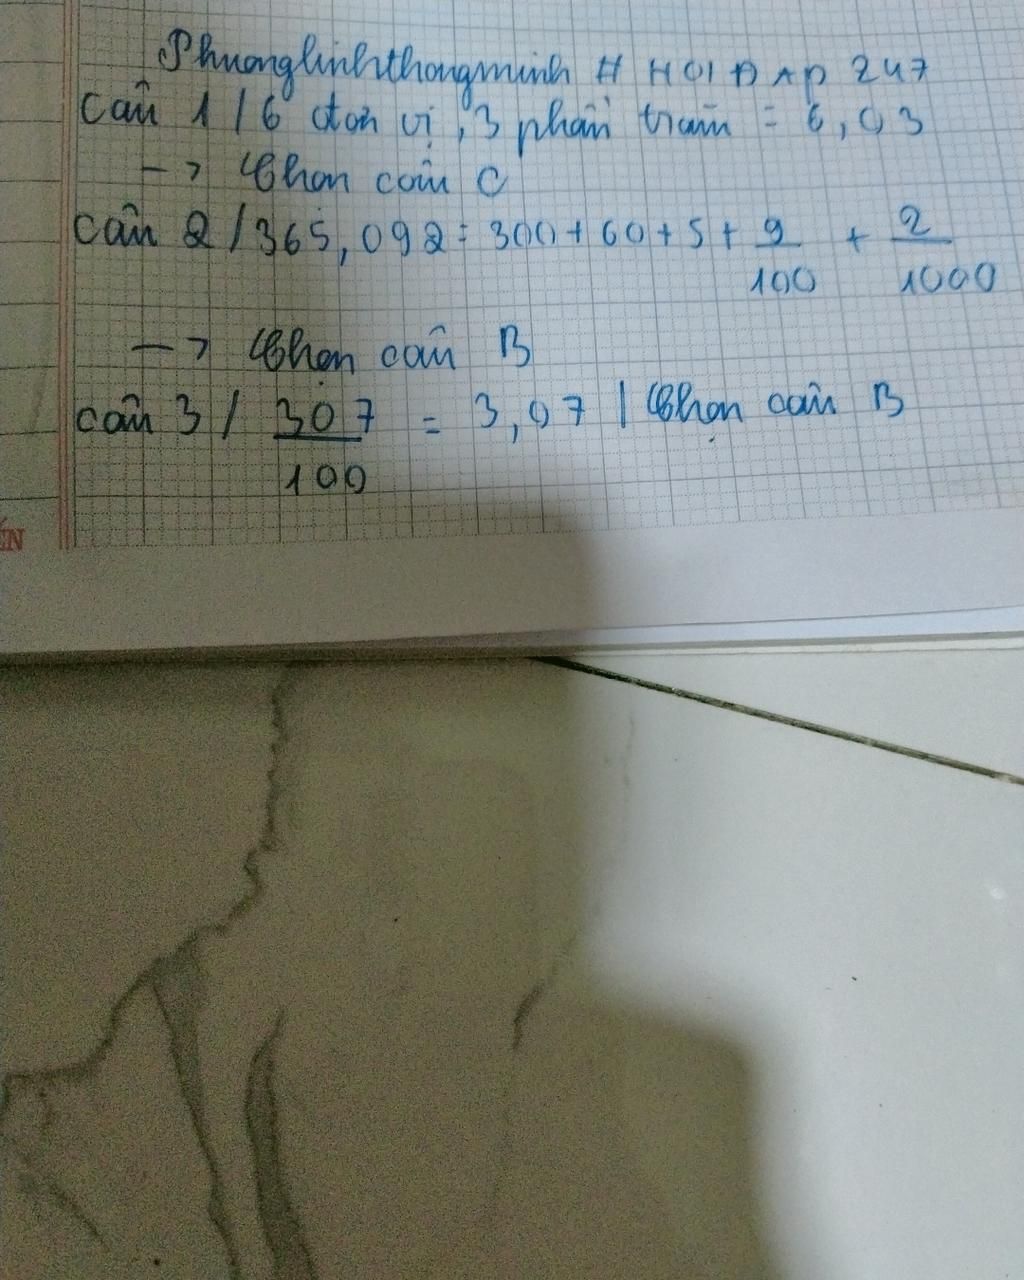 Phuonglinhthongminh # HOIDAP 247
Câu 1 / 6 đơn vị, 3 phần trăm = 6,03
-> Chọn câu C
câu 2 / 365,092 = 300 + 60 + 5 + 9/100 + 2/1000
-> Chọn câu B
câu 3 / 307/100 = 3,07 | Chọn câu B
ẾN